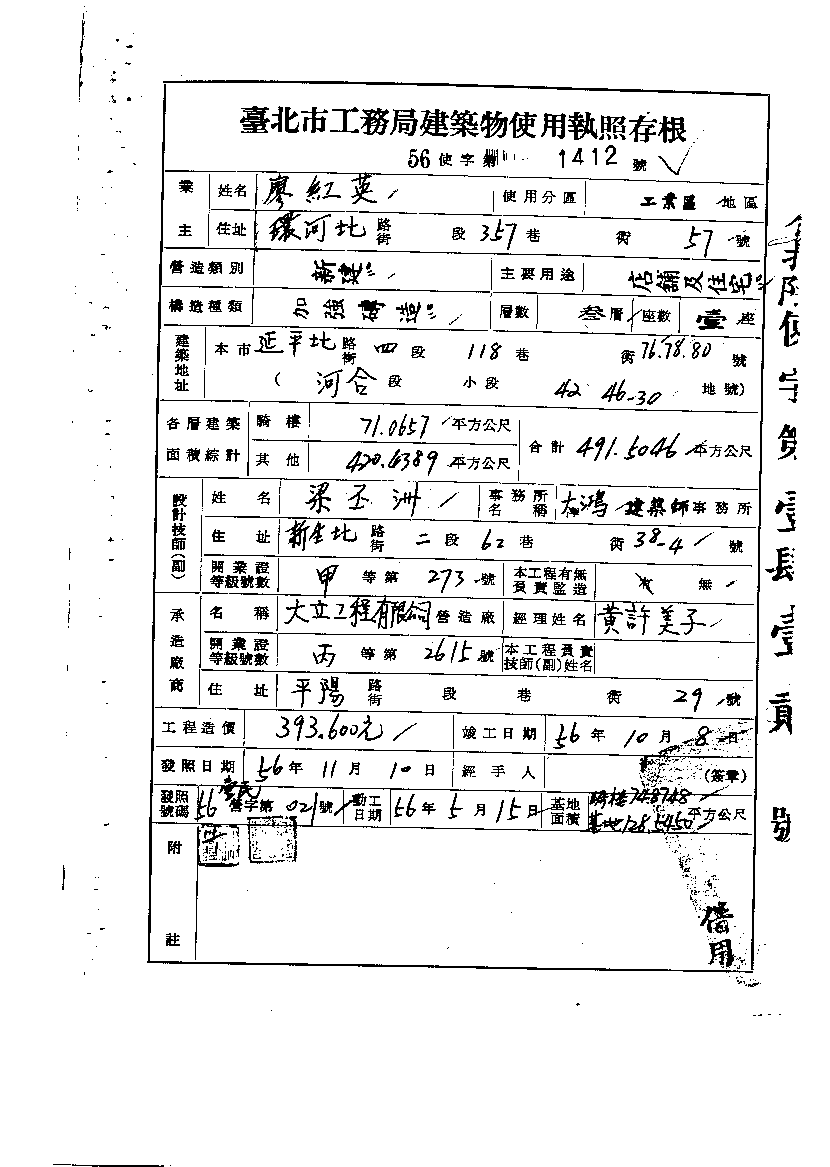 臺北市工務局建築物使用執照存根
56 使字第 1412 號
業主 姓名 廖紅英 使用分區 工業區 地區
住址 環河北 路街 段 357 巷 衖 57 號
營造類別 新建 主要用途 店舖及住宅
構造種類 加強磚造 層數 叁層 座數 壹座
建築地址 本市 延平北 路街 四段 118 巷 衖 76.78.80 號
( 河合段 小段 42 46-30 地號)
各層建築面積綜計 騎樓 71.0657 平方公尺 合計 491.5046 平方公尺
其他 420.4389 平方公尺
設計技師(副) 姓名 梁丕洲 事務所名稱 大鴻 建築師事務所
住址 新生北 路街 二段 62 巷 衖 38-4 號
開業證等級號數 甲 等第 273 號 本工程有無負責監造 有 無
承造廠商 名稱 大立工程有限公司 營造廠 經理姓名 黃許美子
開業證等級號數 丙 等第 2615 號 本工程負責技師(副)姓名
住址 平陽 路街 段 巷 衖 29 號
工程造價 393.600元 竣工日期 56 年 10 月 8 日
發照日期 56 年 11 月 10 日 經手人 (簽章)
發照號碼 56 營字第 021 號 動工日期 56 年 5 月 15 日 基地面積 騎樓 74.8748 基地 128.5450 平方公尺
附註
借用
使字第壹肆壹貳號